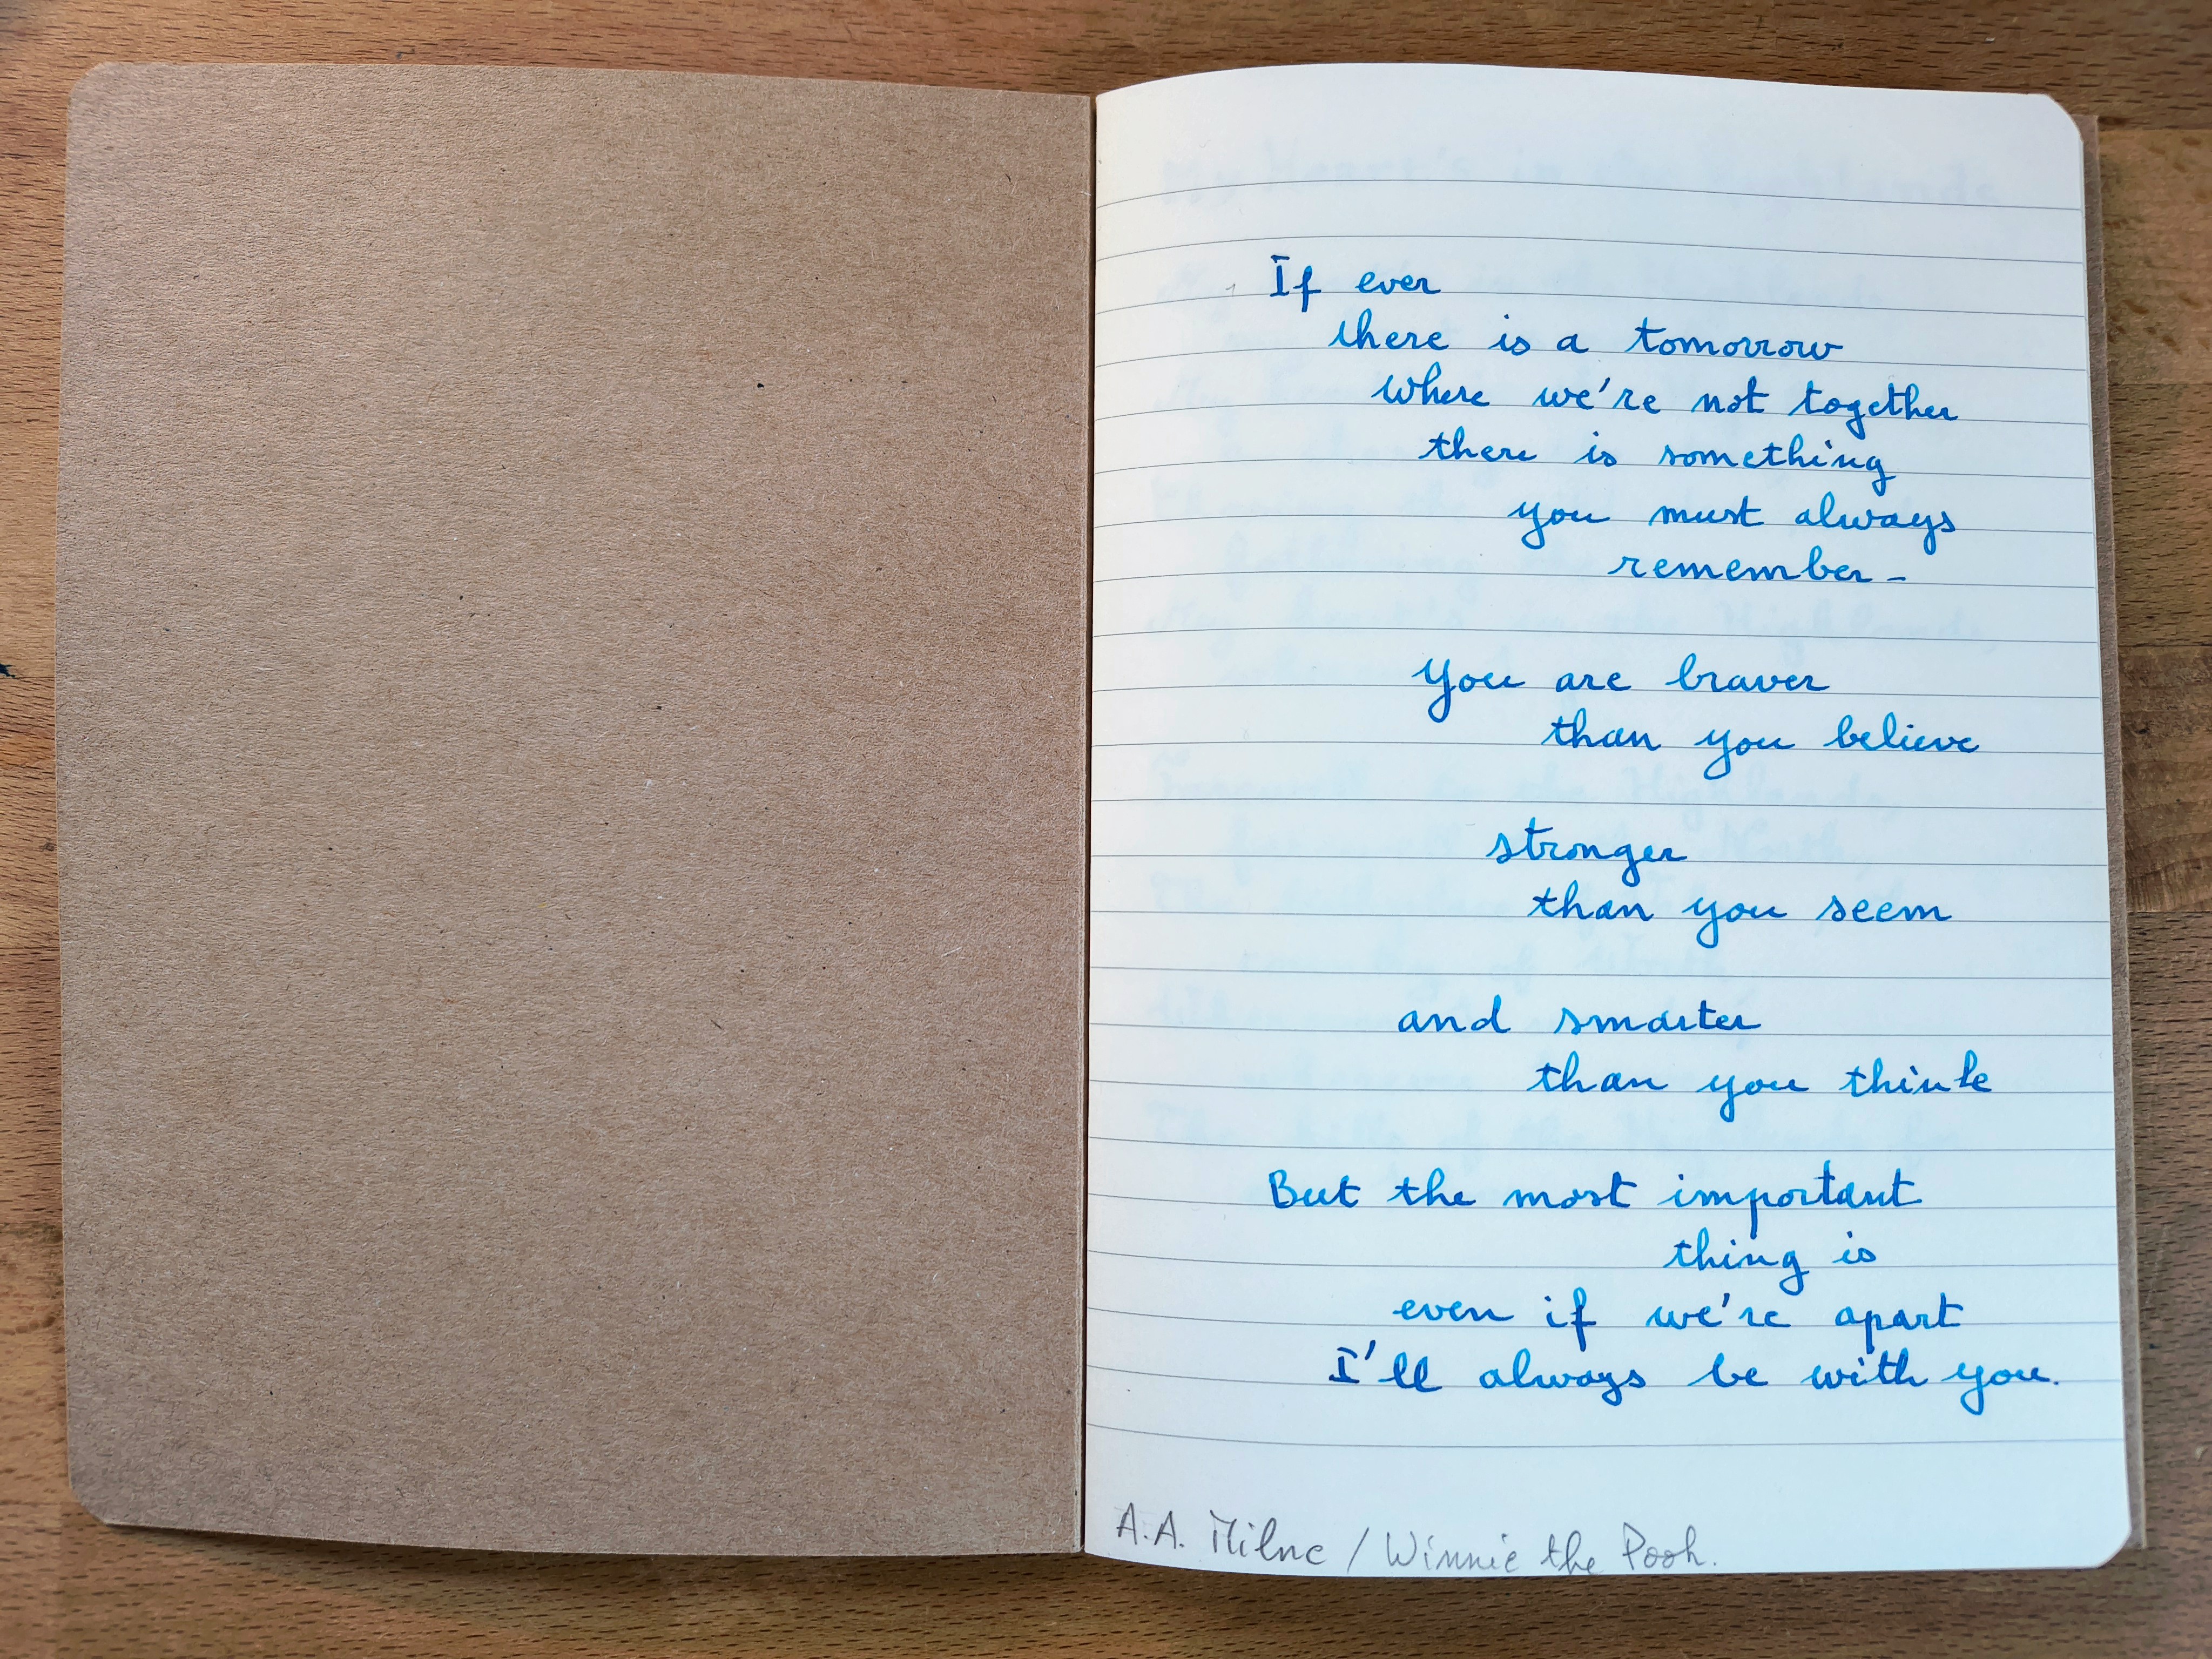 If ever
there is a tomorrow
where we're not together
there is something
you must always
remember -
You are braver
than you believe
stronger
than you seem
and smarter
than you think
But the most important
thing is
even if we're apart
I'll always be with you.
A.A. Milne / Winnie the Pooh.